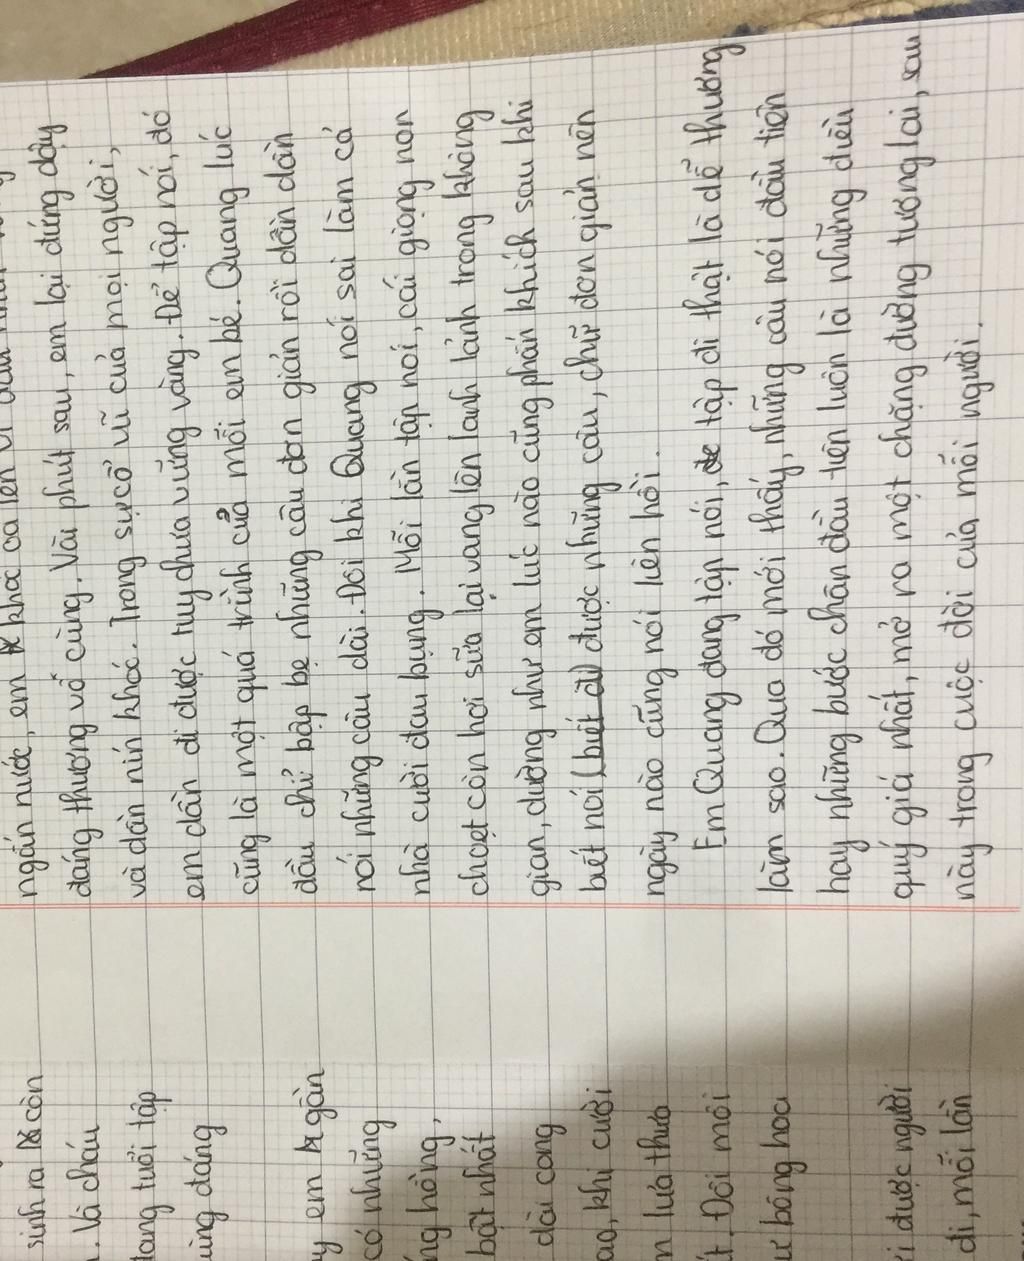 sinh ra còn
. Là cháu
đang tuổi tập
ùng đáng
y em gần
có những
ng hồng,
bật nhất
dài cong
ao, khi cười
n lưa thưa
t. Đôi môi
ư bông hoa
i được người
đi, mỗi lần
ngấn nước, em khóc oa lên
đáng thương vô cùng. Vài phút sau, em lại đứng dậy
và dần nín khóc. Trong sự cổ vũ của mọi người,
em dần đi được tuy chưa vững vàng. Để tập nói, đó
cũng là một quá trình của mỗi em bé. Quang lúc
đầu chỉ bập bẹ những câu đơn giản rồi dần dần
nói những câu dài. Đôi khi Quang nói sai làm cả
nhà cười đau bụng. Mỗi lần tập nói, cái giọng non
choẹt còn hơi sữa lại vang lên lanh lảnh trong không
gian, dường như em lúc nào cũng phấn khích sau khi
biết nói (biết đi) được những câu, chữ đơn giản nên
ngày nào cũng nói liên hồi.
Em Quang đang tập nói, tập đi thật là dễ thương
làm sao. Qua đó mới thấy, những câu nói đầu tiên
hay những bước chân đầu tiên luôn là những điều
quý giá nhất, mở ra một chặng đường tương lai, sau
này trong cuộc đời của mỗi người.